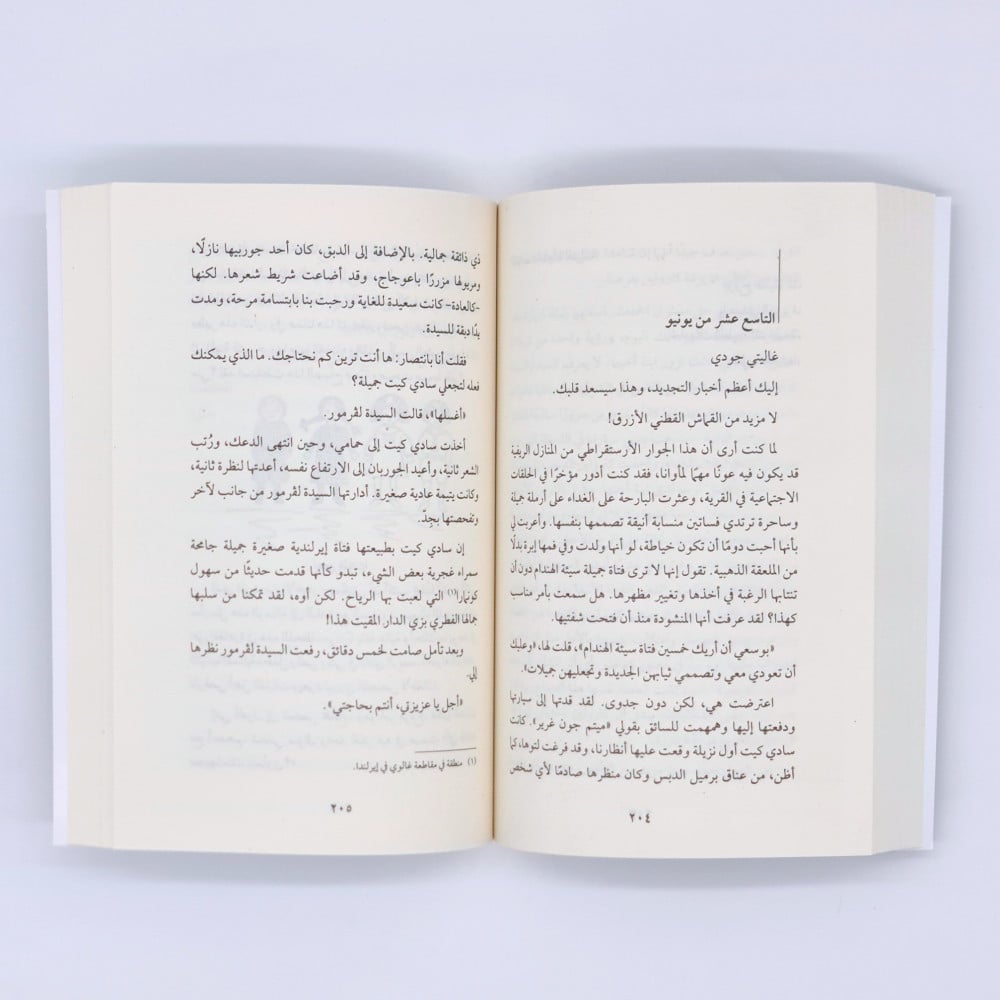 التاسع عشر من يونيو
غاليتي جودي
إليك أعظم أخبار التجديد، وهذا سيسعد قلبك.
لا مزيد من القماش القطني الأزرق!
لما كنت أرى أن هذا الجوار الأرستقراطي من المنازل الريفية
قد يكون فيه عونًا مهمًا لمأوانا، فقد كنت أدور مؤخرًا في الحلقات
الاجتماعية في القرية، وعثرت البارحة على الغداء على أرملة جميلة
وساحرة ترتدي فساتين منسابة أنيقة تصممها بنفسها. وأعربت لي
بأنها أحبت دومًا أن تكون خياطة، لو أنها ولدت وفي فمها إبرة بدلًا
من الملعقة الذهبية. تقول إنها لا ترى فتاة جميلة سيئة الهندام دون أن
تنتابها الرغبة في أخذها وتغيير مظهرها. هل سمعت بأمر مناسب
كهذا؟ لقد عرفت أنها المنشودة منذ أن فتحت شفتيها.
«بوسعي أن أريك خمسين فتاة سيئة الهندام»، قلت لها، «وعليك
أن تعودي معي وتصممي ثيابهن الجديدة وتجعليهن جميلات».
اعترضت هي، لكن دون جدوى. لقد قدتها إلى سيارتها
ودفعتها إليها وهمهمت للسائق بقولي «ميتم جون غرير». كانت
سادي كيت أول نزيلة وقعت عليها أنظارنا، وقد فرغت لتوها، كما
أظن، من عناق برميل الدبس وكان منظرها صادمًا لأي شخص
٢٠٤
ذي ذائقة جمالية. بالإضافة إلى الدبق، كان أحد جوربيها نازلًا،
ومريولها مزررًا باعوجاج، وقد أضاعت شريط شعرها. لكنها
-كالعادة- كانت سعيدة للغاية ورحبت بنا بابتسامة مرحة، ومدت
يدًا دبقة للسيدة.
فقلت أنا بانتصار: ها أنت ترين كم نحتاجك. ما الذي يمكنك
فعله لتجعلي سادي كيت جميلة؟
«أغسلها»، قالت السيدة لڤرمور.
أخذت سادي كيت إلى حمامي، وحين انتهى الدعك، ورُتب
الشعر ثانية، وأعيد الجوربان إلى الارتفاع نفسه، أعدتها لنظرة ثانية،
وكانت يتيمة عادية صغيرة. أدارتها السيدة لڤرمور من جانب لآخر
وتفحصتها بجِدّ.
إن سادي كيت بطبيعتها فتاة إيرلندية صغيرة جميلة جامحة
سمراء غجرية بعض الشيء، تبدو كأنها قدمت حديثًا من سهول
كونهارا(١) التي لعبت بها الرياح. لكن أوه، لقد تمكنا من سلبها
جمالها الفطري بزي الدار المقيت هذا!
وبعد تأمل صامت لخمس دقائق، رفعت السيدة لڤرمور نظرها
إلي.
«أجل يا عزيزتي، أنتم بحاجتي».
(١) منطقة في مقاطعة غالوي في إيرلندا.
٢٠٥